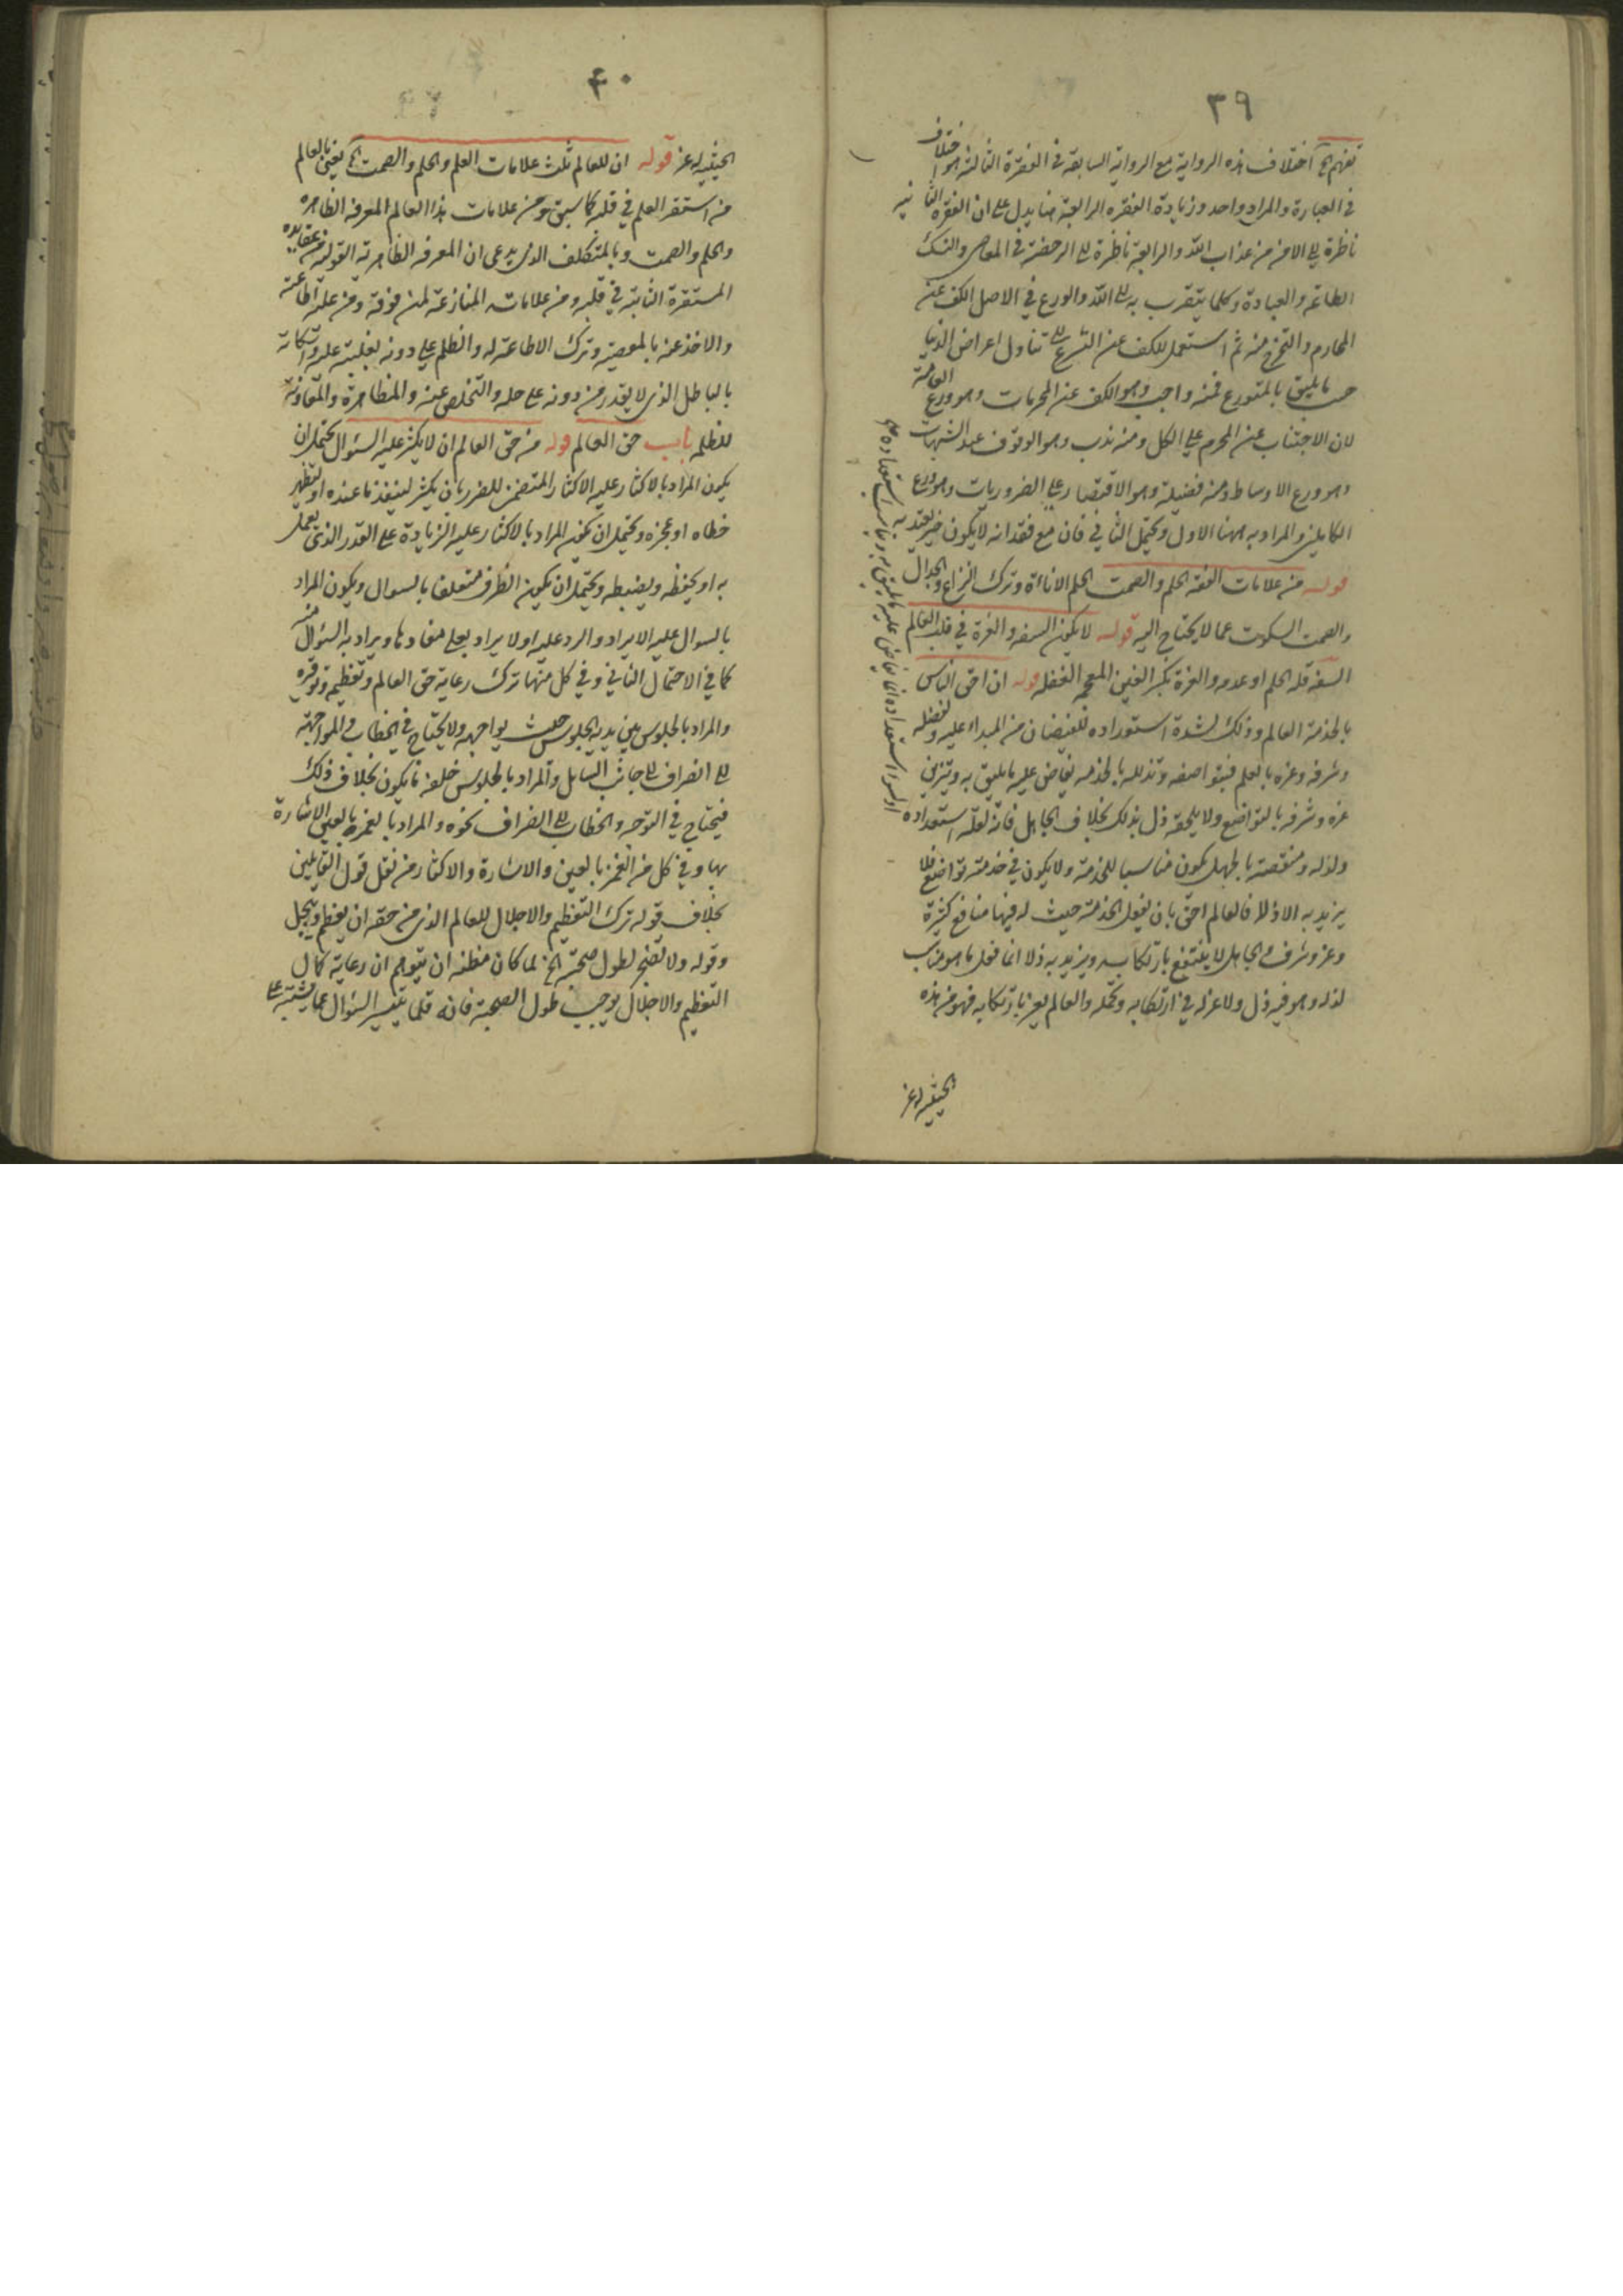 ٣٩
تفهم الخ اختلاف هذه الرواية مع الرواية السابقة في الفقرة الثالثة هو اختلاف
في العبارة والمراد واحد وزيادة الفقره الرابعة هنا يدل على ان الفقره الثانية
ناظرة الى الامن من عذاب الله والرابعة ناظرة الى الرخصة في المعاصي والنسك
الطاعة والعبادة وكلما يتقرب به الى الله والورع في الاصل الكف عن
المحارم والتحرج منه ثم استعمل للكف عن التسرع الى تناول اعراض الدنيا
حسب ما يليق بالمتورع فمنه واجب وهو الكف عن المحرمات وهو ورع العامة
لان الاجتناب عن المحرم على الكل ومنه ندب وهو الوقوف عند الشبهات
وهو ورع الاوساط ومنه فضيلة وهو الاقتصار على الضروريات وهو ورع
الكاملين والمراد به ههنا الاول ويحتمل الثاني فان مع فقدانه لا يكون خير يعتد به
قوله من علامات الفقه الحلم والصمت الحلم الاناءة وترك النزاع والجدال
والصمت السكوت عما لا يحتاج اليه قوله لا يكون السفه والغرة في قلب العالم
السفه قلة الحلم او عدمه والغرة بكسر الغين المعجمه الغفله قوله ان احق الناس
بالخدمة العالم وذلك لشدة استعداده للفيضان من المبداء عليه ولفضله
وشرفه وعزه بالعلم فبتواضعه وتذلله بالخدمه يفاض عليه ما يليق به ويتزين
عزه وشرفه بالتواضع ولا يلحقه ذل بذلك بخلاف الجاهل فانه لقلة استعداده
ولذله ومنقصته بالجهل يكون مناسبا للخدمة ولا يكون في خدمته تواضع فلا
يزيد به الا ذلا فالعالم احق بان يفعل الخدمة حيث له فيها منافع كثيرة
وعز وشرف والجاهل لا ينتفع بارتكابه ويزيد به ذلا انما فعل ما هو مناسب
لذله وهو فيه ذل ولا عز له في ارتكابه وتحمله والعالم يعز بارتكابه فهو من هذه
الحيثية له عز
او لسوء استعداده انما يفاض عليه ما يليق به وبمناسب استعداده
٤٠
الحيثية له عز قوله ان للعالم ثلث علامات العلم والحلم والصمت الخ يعني بالعالم
من استقر العلم في قلبه كما سبق ومن علامات هذا العالم المعرفه الظاهره
والحلم والصمت وبالمتكلف الذي يدعى ان المعرفه الظاهرية القولية من عقايده
المستقرة الثابتة في قلبه ومن علاماته المنازعة لمن فوقه ومن عليه اطاعته
والاخذ عنه بالمعصية وترك الاطاعة له والظلم على دونه بغلبته عليه
بالباطل الذي لا يقدر من دونه على حله والتخلص عنه والمظاهرة والمعاونة
للظلمه باب حق العالم قوله من حق العالم ان لا يكثر عليه السئوال يحتمل ان
يكون المراد بالاكثار عليه الاكثار المتضمن للضرر بان يكثر لينفذ ما عنده او ليظهر
خطاه او عجزه ويحتمل ان يكون المراد بالاكثار عليه الزيادة على القدر الذي يعمل
به او يحفظه ويضبطه ويحتمل ان يكون الظرف متعلقا بالسوال ويكون المراد
بالسوال عليه الايراد والرد عليه او لا يراد بعلى مفادها ويراد به السؤال منه
كما في الاحتمال الثاني وفي كل منها ترك رعاية حق العالم وتعظيمه وتوقيره
والمراد بالجلوس بين يديه الجلوس حيث يواجهه ولا يحتاج في الخطاب والمواجهة
الى انصراف الى جانب السايل والمراد بالجلوس خلفه ما يكون بخلاف ذلك
فيحتاج في التوجه والخطاب الى انصراف نحوه والمراد بالغمز بالعين الاشارة
بها وفي كل من الغمز بالعين والاشارة والاكثار من نقل قول القائلين
بخلاف قوله ترك التعظيم والاجلال للعالم الذي من حقه ان يعظم ويبجل
وقوله ولا تضجر لطول صحبته الخ لما كان مظنه ان يتوهم ان رعاية كمال
التعظيم والاجلال يوجب طول الصحبة فانه قلما يتيسر السئوال عما يشتبه على